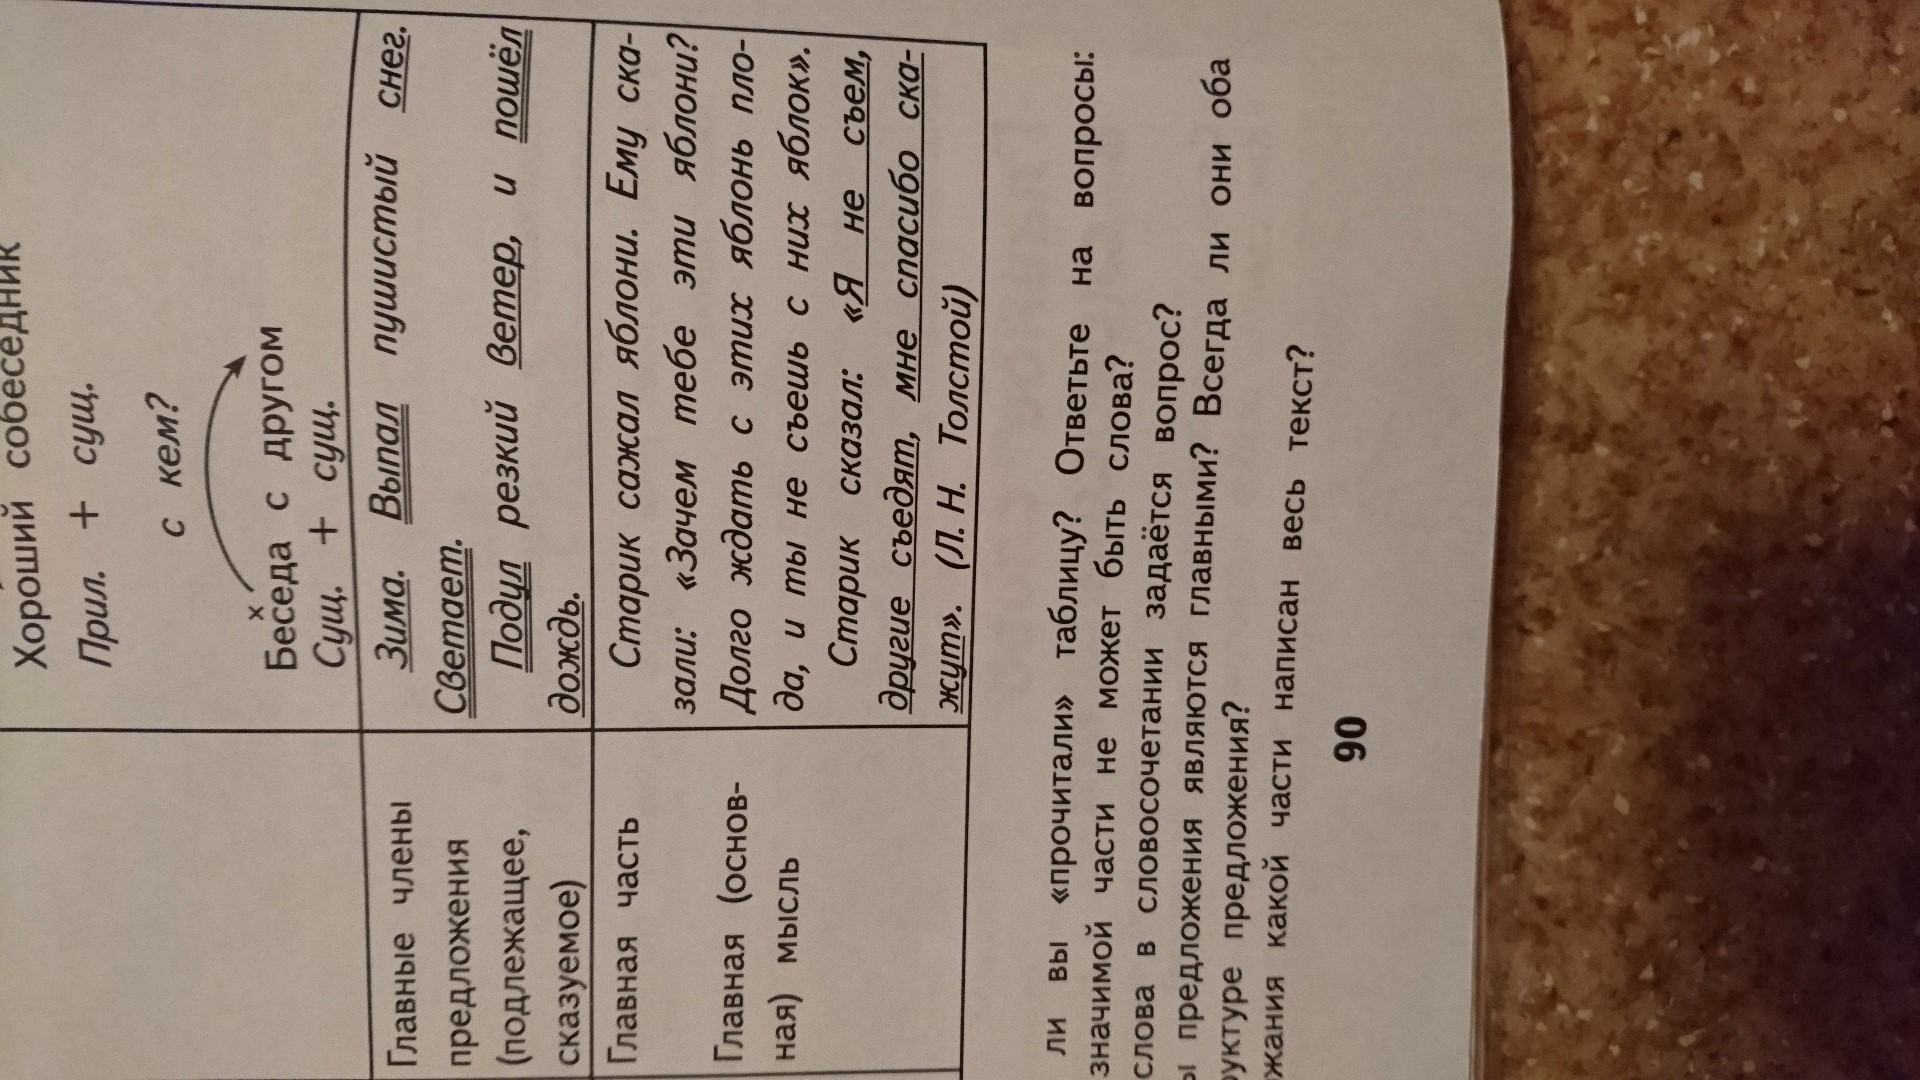 Хороший собеседник
Прил. + сущ.
с кем?
х
Беседа с другом
Сущ. + сущ.
Главные члены
предложения
(подлежащее,
сказуемое)
Зима. Выпал пушистый снег.
Светает.
Подул резкий ветер, и пошёл
дождь.
Главная часть
Главная (основ-
ная) мысль
Старик сажал яблони. Ему ска-
зали: «Зачем тебе эти яблони?
Долго ждать с этих яблонь пло-
да, и ты не съешь с них яблок».
Старик сказал: «Я не съем,
другие съедят, мне спасибо ска-
жут». (Л. Н. Толстой)
ли вы «прочитали» таблицу? Ответьте на вопросы:
значимой части не может быть слова?
слова в словосочетании задаётся вопрос?
предложения являются главными? Всегда ли они оба
предложения?
какой части написан весь текст?
90